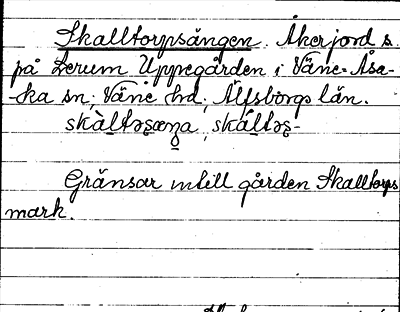 Skalltorpsängen. Åkerjord s.
på Lerum Uppegården i Väne-Åsa-
-ka sn; Väne hd; Älfsborgs län.
skàltəʂæŋa, skáltəʂ-
Gränsar intill gården Skalltorps
mark.